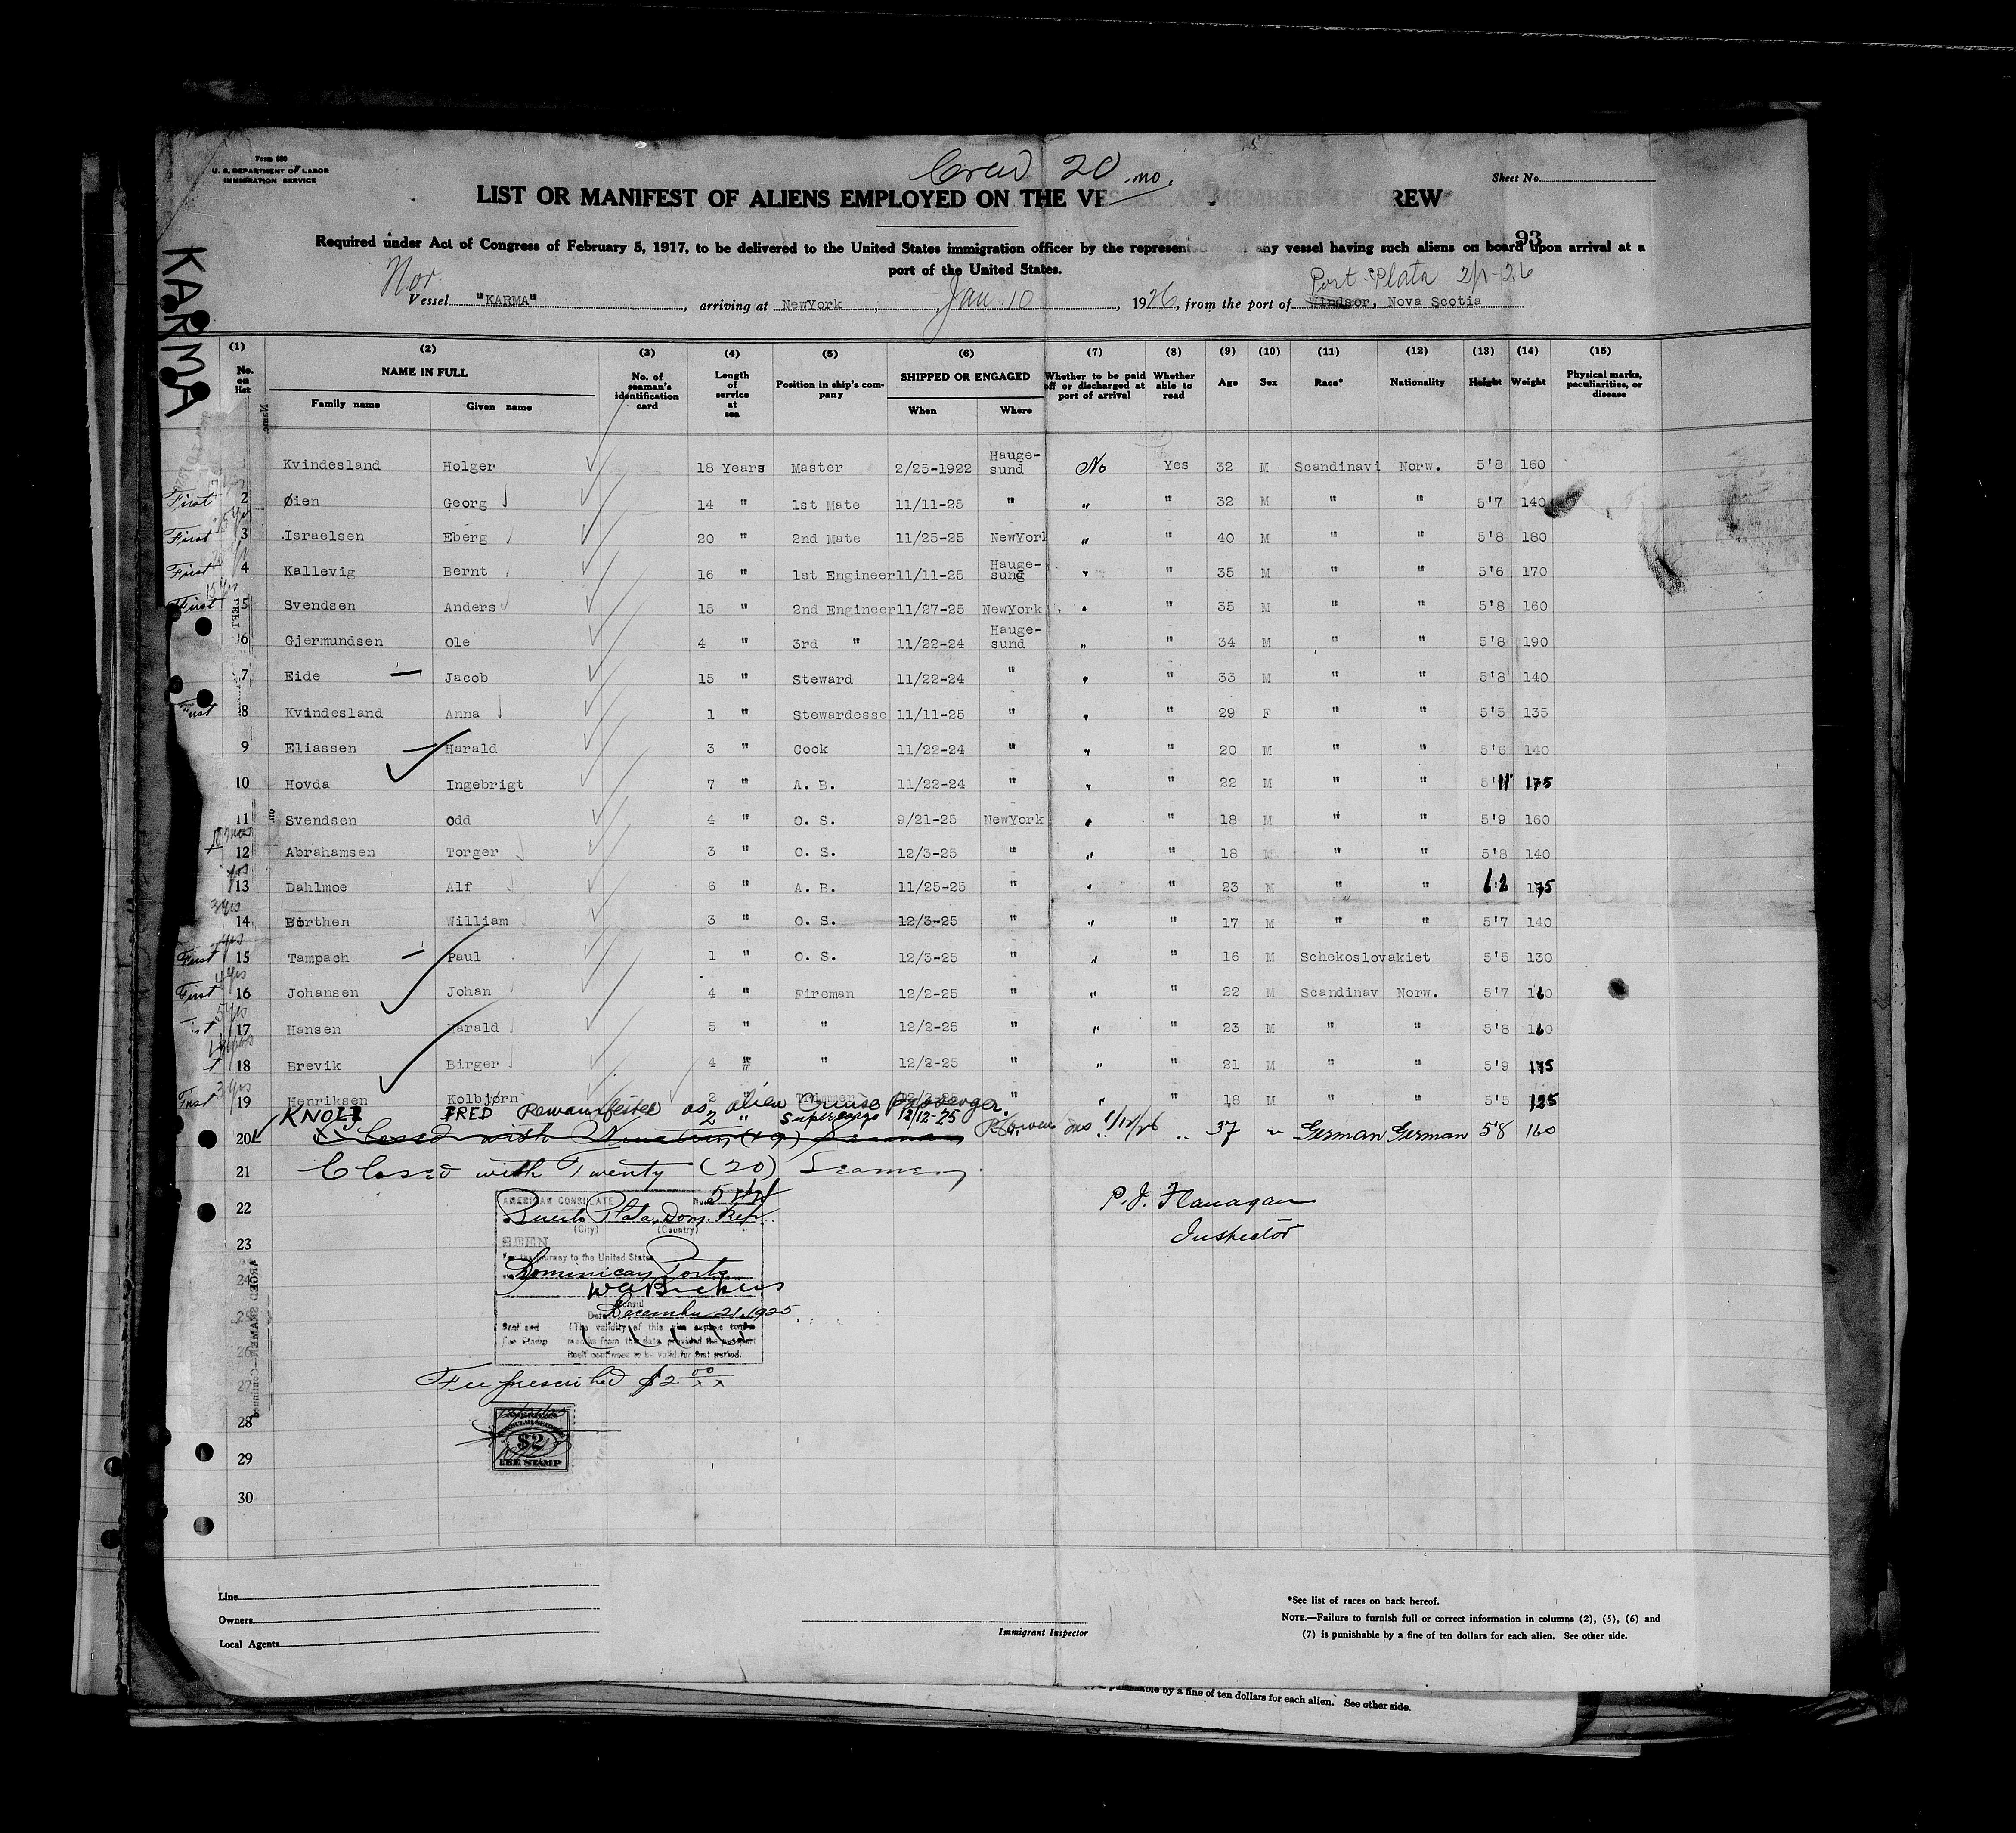 Form 680
U. S. DEPARTMENT OF LABOR
IMMIGRATION SERVICE
Crew 20
Sheet No.
LIST OR MANIFEST OF ALIENS EMPLOYED ON THE VESSEL AS MEMBERS OF CREW
93
Required under Act of Congress of February 5, 1917, to be delivered to the United States immigration officer by the represent any vessel having such aliens on board upon arrival at a
port of the United States.
KARMA
Nor. Port Plata 2/1-26
Vessel "KARMA", arriving at NewYork, Jan 10, 1926, from the port of Windsor, Nova Scotia
(1) (2) (3) (4) (5) (6) (7) (8) (9) (10) (11) (12) (13) (14) (15)
No. on list NAME IN FULL Family name Given name No. of seaman's identification card Length of service at sea Position in ship's company SHIPPED OR ENGAGED When Where Whether to be paid off or discharged at port of arrival Whether able to read Age Sex Race* Nationality Height Weight Physical marks, peculiarities, or disease
Kvindesland Holger 18 Years Master 2/25-1922 Hauge-sund No Yes 32 M Scandinavi Norw. 5'8 160
First 2 Øien Georg 14 " 1st Mate 11/11-25 " " " 32 M " " 5'7 140
First 3 Israelsen Eberg 20 " 2nd Mate 11/25-25 NewYork " " 40 M " " 5'8 180
First 4 Kallevig Bernt 16 " 1st Engineer 11/11-25 Hauge-sund " " 35 M " " 5'6 170
First 5 Svendsen Anders 15 " 2nd Engineer 11/27-25 NewYork " " 35 M " " 5'8 160
6 Gjermundsen Ole 4 " 3rd " 11/22-24 Hauge-sund " " 34 M " " 5'8 190
7 Eide Jacob 15 " Steward 11/22-24 " " " 33 M " " 5'8 140
8 Kvindesland Anna 1 " Stewardesse 11/11-25 " " " 29 F " " 5'5 135
9 Eliassen Harald 3 " Cook 11/22-24 " " " 20 M " " 5'6 140
10 Hovda Ingebrigt 7 " A. B. 11/22-24 " " " 22 M " " 5'11 175
11 Svendsen Odd 4 " O. S. 9/21-25 NewYork " " 18 M " " 5'9 160
12 Abrahamsen Torger 3 " O. S. 12/3-25 " " " 18 M " " 5'8 140
13 Dahlmoe Alf 6 " A. B. 11/25-25 " " " 23 M " " 6'2 175
14 Borthen William 3 " O. S. 12/3-25 " " " 17 M " " 5'7 140
First 15 Tampach Paul 1 " O. S. 12/3-25 " " " 16 M Schekoslovakiet 5'5 130
First 16 Johansen Johan 4 " Fireman 12/2-25 " " " 22 M Scandinav Norw. 5'7 160
17 Hansen Harald 5 " " 12/2-25 " " " 23 M " " 5'8 160
18 Brevik Birger 4 " " 12/2-25 " " " 21 M " " 5'9
First 19 Henriksen Kolbjørn 2 " Trimmer " " " 18 M " " 5'5 125
KNOLL FRED Remanifested as alien passenger.
20 2 " Supercargo 12/12-25 1/12/26 " 37 " German German 5'8 160
Closed with Nineteen (19) Seamen
21 Closed with Twenty (20) Seamen
P. J. Flanagan
Inspector
22
23
24
25
26
27
28
29
30
AMERICAN CONSULATE No.
Puerto Plata, Dom. Rep.
(City) (Country)
SEEN
For the journey to the United States
Dominican Ports
Consul
Date December 21, 1925
Fee prescribed $2.00
$2
FEE STAMP
Line
Owners
Local Agents
Immigrant Inspector
*See list of races on back hereof.
NOTE.—Failure to furnish full or correct information in columns (2), (5), (6) and
(7) is punishable by a fine of ten dollars for each alien. See other side.
punishable by a fine of ten dollars for each alien. See other side.